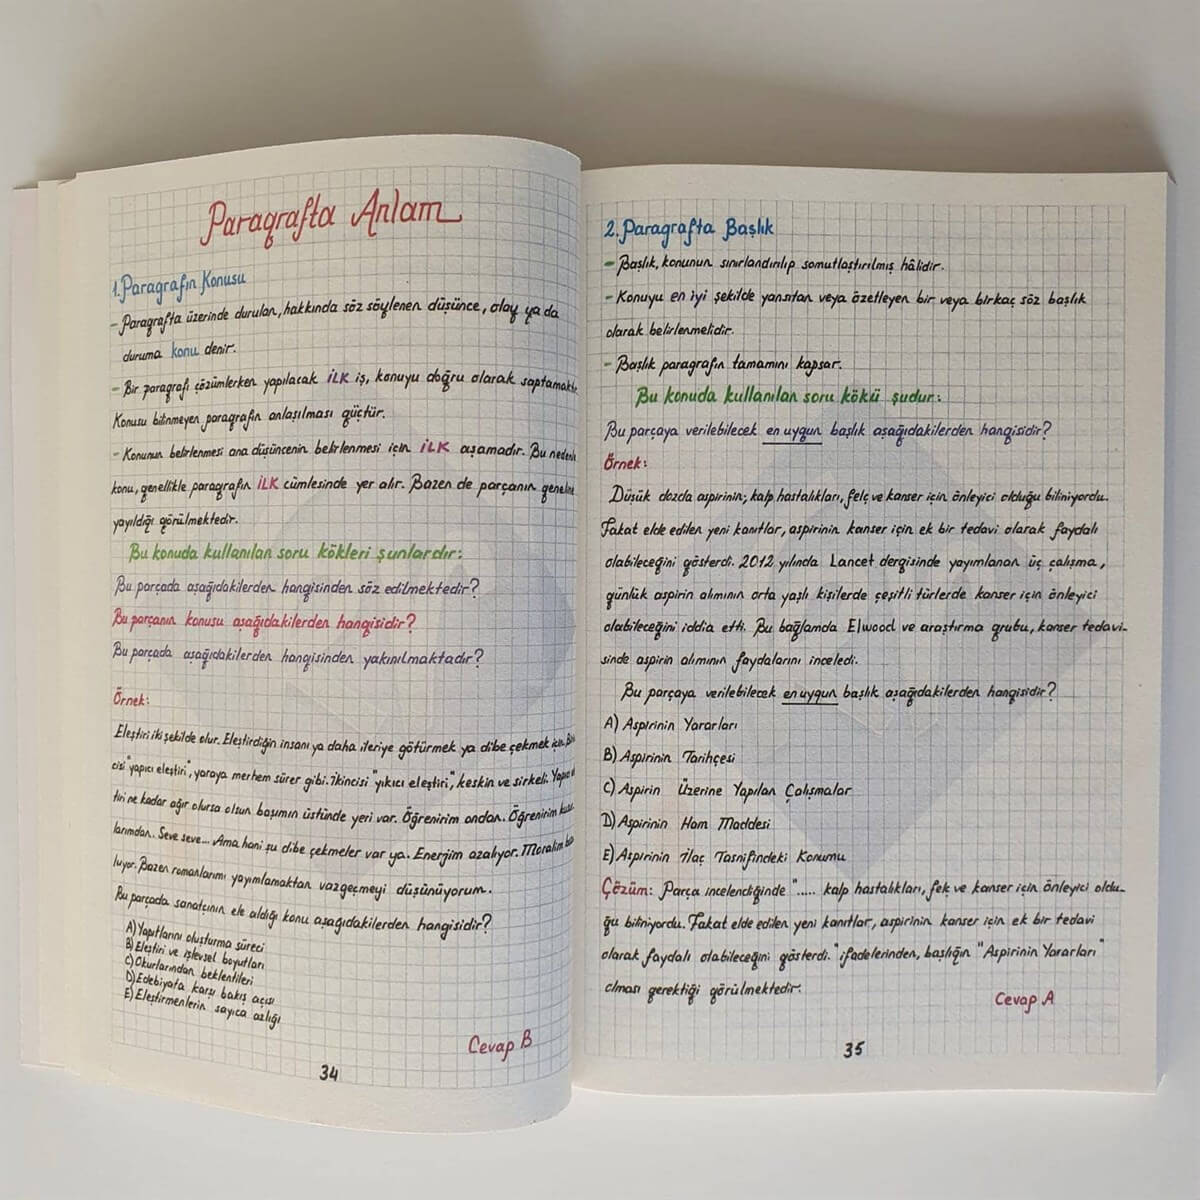 Paragrafta Anlam
1. Paragrafın Konusu
- Paragrafta üzerinde durulan, hakkında söz söylenen düşünce, olay ya da
duruma konu denir.
- Bir paragrafı çözümlerken yapılacak İLK iş, konuyu doğru olarak saptamaktır.
Konusu bilinmeyen paragrafın anlaşılması güçtür.
- Konunun belirlenmesi ana düşüncenin belirlenmesi için İLK aşamadır. Bu nedenle
konu, genellikle paragrafın İLK cümlesinde yer alır. Bazen de parçanın geneline
yayıldığı görülmektedir.
Bu konuda kullanılan soru kökleri şunlardır:
Bu parçada aşağıdakilerden hangisinden söz edilmektedir?
Bu parçanın konusu aşağıdakilerden hangisidir?
Bu parçada aşağıdakilerden hangisinden yakınılmaktadır?
Örnek:
Eleştiri iki şekilde olur. Eleştirdiğin insanı ya daha ileriye götürmek ya dibe çekmek için.
cisi "yapıcı eleştiri", yaraya merhem sürer gibi. İkincisi "yıkıcı eleştiri", keskin ve sirkeli.
tiri ne kadar ağır olursa olsun başımın üstünde yeri var. Öğrenirim ondan. Öğrenirim
larımdan. Seve seve... Ama hani şu dibe çekmeler var ya. Enerjim azalıyor. Moralim
luyor. Bazen romanlarımı yayımlamaktan vazgeçmeyi düşünüyorum.
Bu parçada sanatçının ele aldığı konu aşağıdakilerden hangisidir?
A) Yapıtlarını oluşturma süreci
B) Eleştiri ve işlevsel boyutları
C) Okurlarından beklentileri
D) Edebiyata karşı bakış açısı
E) Eleştirmenlerin sayıca azlığı
Cevap B
34
2. Paragrafta Başlık
- Başlık, konunun sınırlandırılıp somutlaştırılmış hâlidir.
- Konuyu en iyi şekilde yansıtan veya özetleyen bir veya birkaç söz başlık
olarak belirlenmelidir.
- Başlık paragrafın tamamını kapsar.
Bu konuda kullanılan soru kökü şudur:
Bu parçaya verilebilecek en uygun başlık aşağıdakilerden hangisidir?
Örnek:
Düşük dozda aspirinin; kalp hastalıkları, felç ve kanser için önleyici olduğu biliniyordu.
Fakat elde edilen yeni kanıtlar, aspirinin kanser için ek bir tedavi olarak faydalı
olabileceğini gösterdi. 2012 yılında Lancet dergisinde yayımlanan üç çalışma,
günlük aspirin alımının orta yaşlı kişilerde çeşitli türlerde kanser için önleyici
olabileceğini iddia etti. Bu bağlamda Elwood ve araştırma grubu, kanser tedavi-
sinde aspirin alımının faydalarını inceledi.
Bu parçaya verilebilecek en uygun başlık aşağıdakilerden hangisidir?
A) Aspirinin Yararları
B) Aspirinin Tarihçesi
C) Aspirin Üzerine Yapılan Çalışmalar
D) Aspirinin Ham Maddesi
E) Aspirinin İlaç Tasnifindeki Konumu
Çözüm: Parça incelendiğinde "..... kalp hastalıkları, felç ve kanser için önleyici oldu-
ğu biliniyordu. Fakat elde edilen yeni kanıtlar, aspirinin kanser için ek bir tedavi
olarak faydalı olabileceğini gösterdi." ifadelerinden, başlığın "Aspirinin Yararları"
olması gerektiği görülmektedir.
Cevap A
35